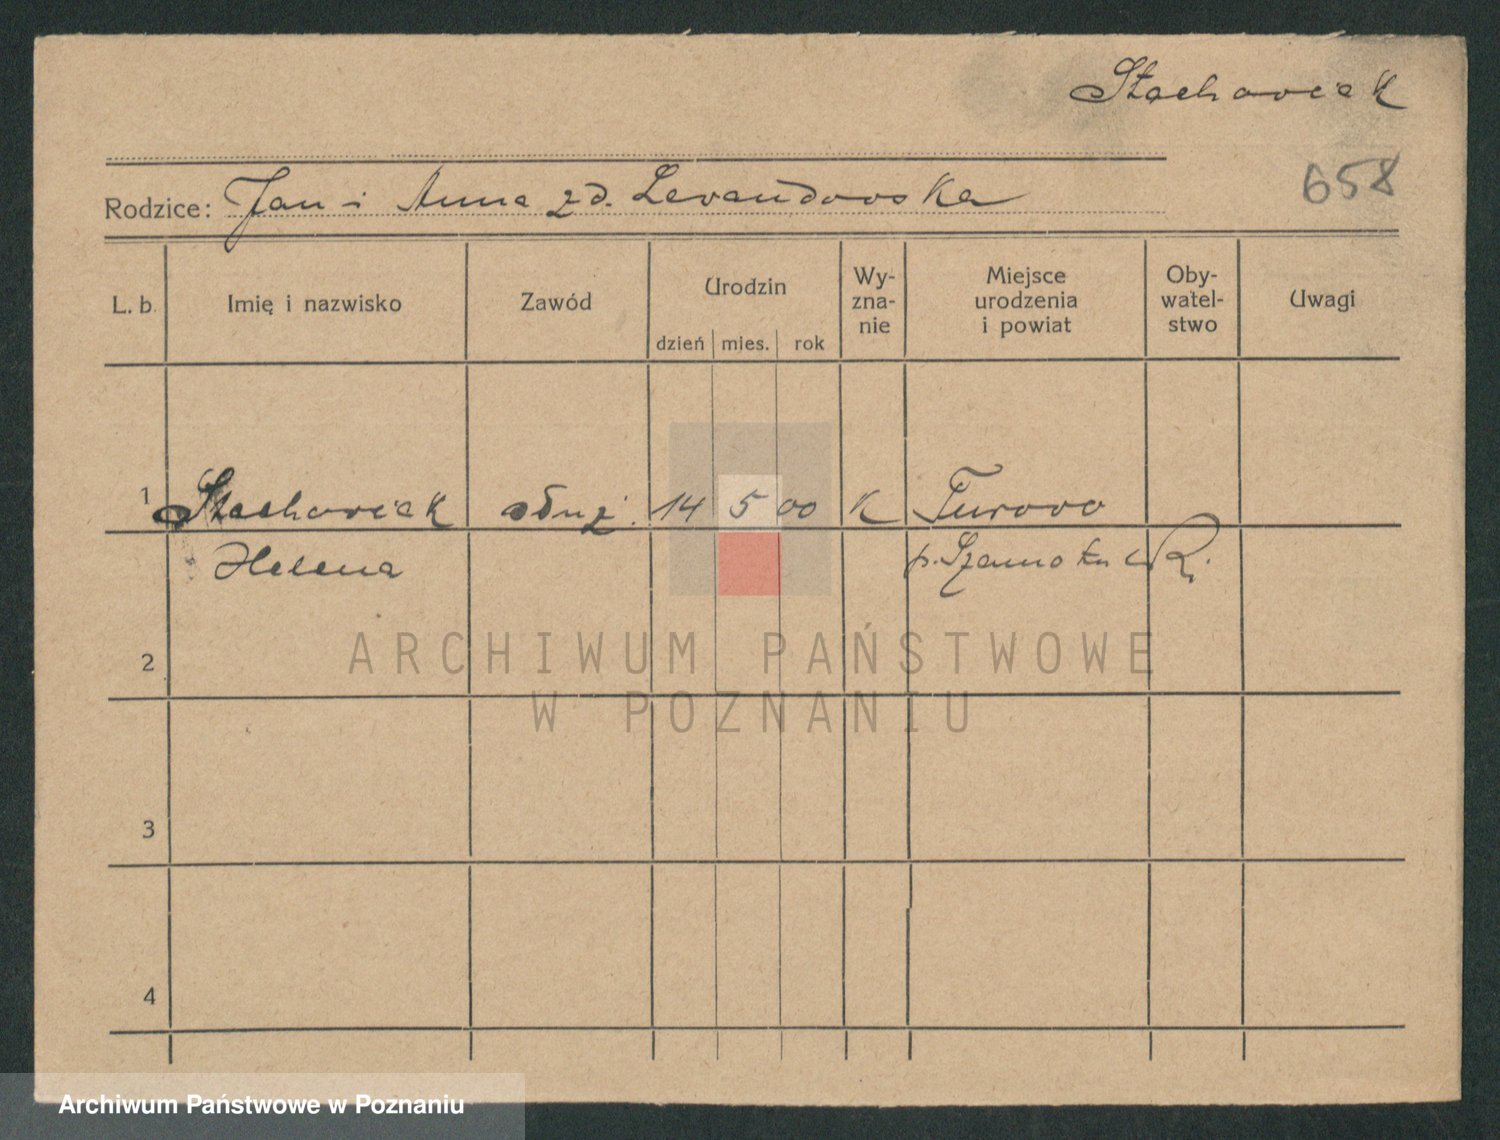 Stachowiak
658
Rodzice: Jan i Anna zd. Lewandowska
L. b. Imię i nazwisko Zawód Urodzin dzień mies. rok Wyznanie Miejsce urodzenia i powiat Obywatelstwo Uwagi
1 Stachowiak służ. 14 5 00 K Turowo
Helena p. Szamotuły
2
3
4
ARCHIWUM PAŃSTWOWE
W POZNANIU
Archiwum Państwowe w Poznaniu